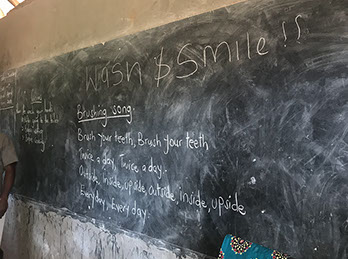 Wash & Smile !!
Brushing song
Brush Your teeth, Brush Your teeth
Twice a day, Twice a day.
Outside, inside, upside, outside, inside, upside
Everyday, Every day.